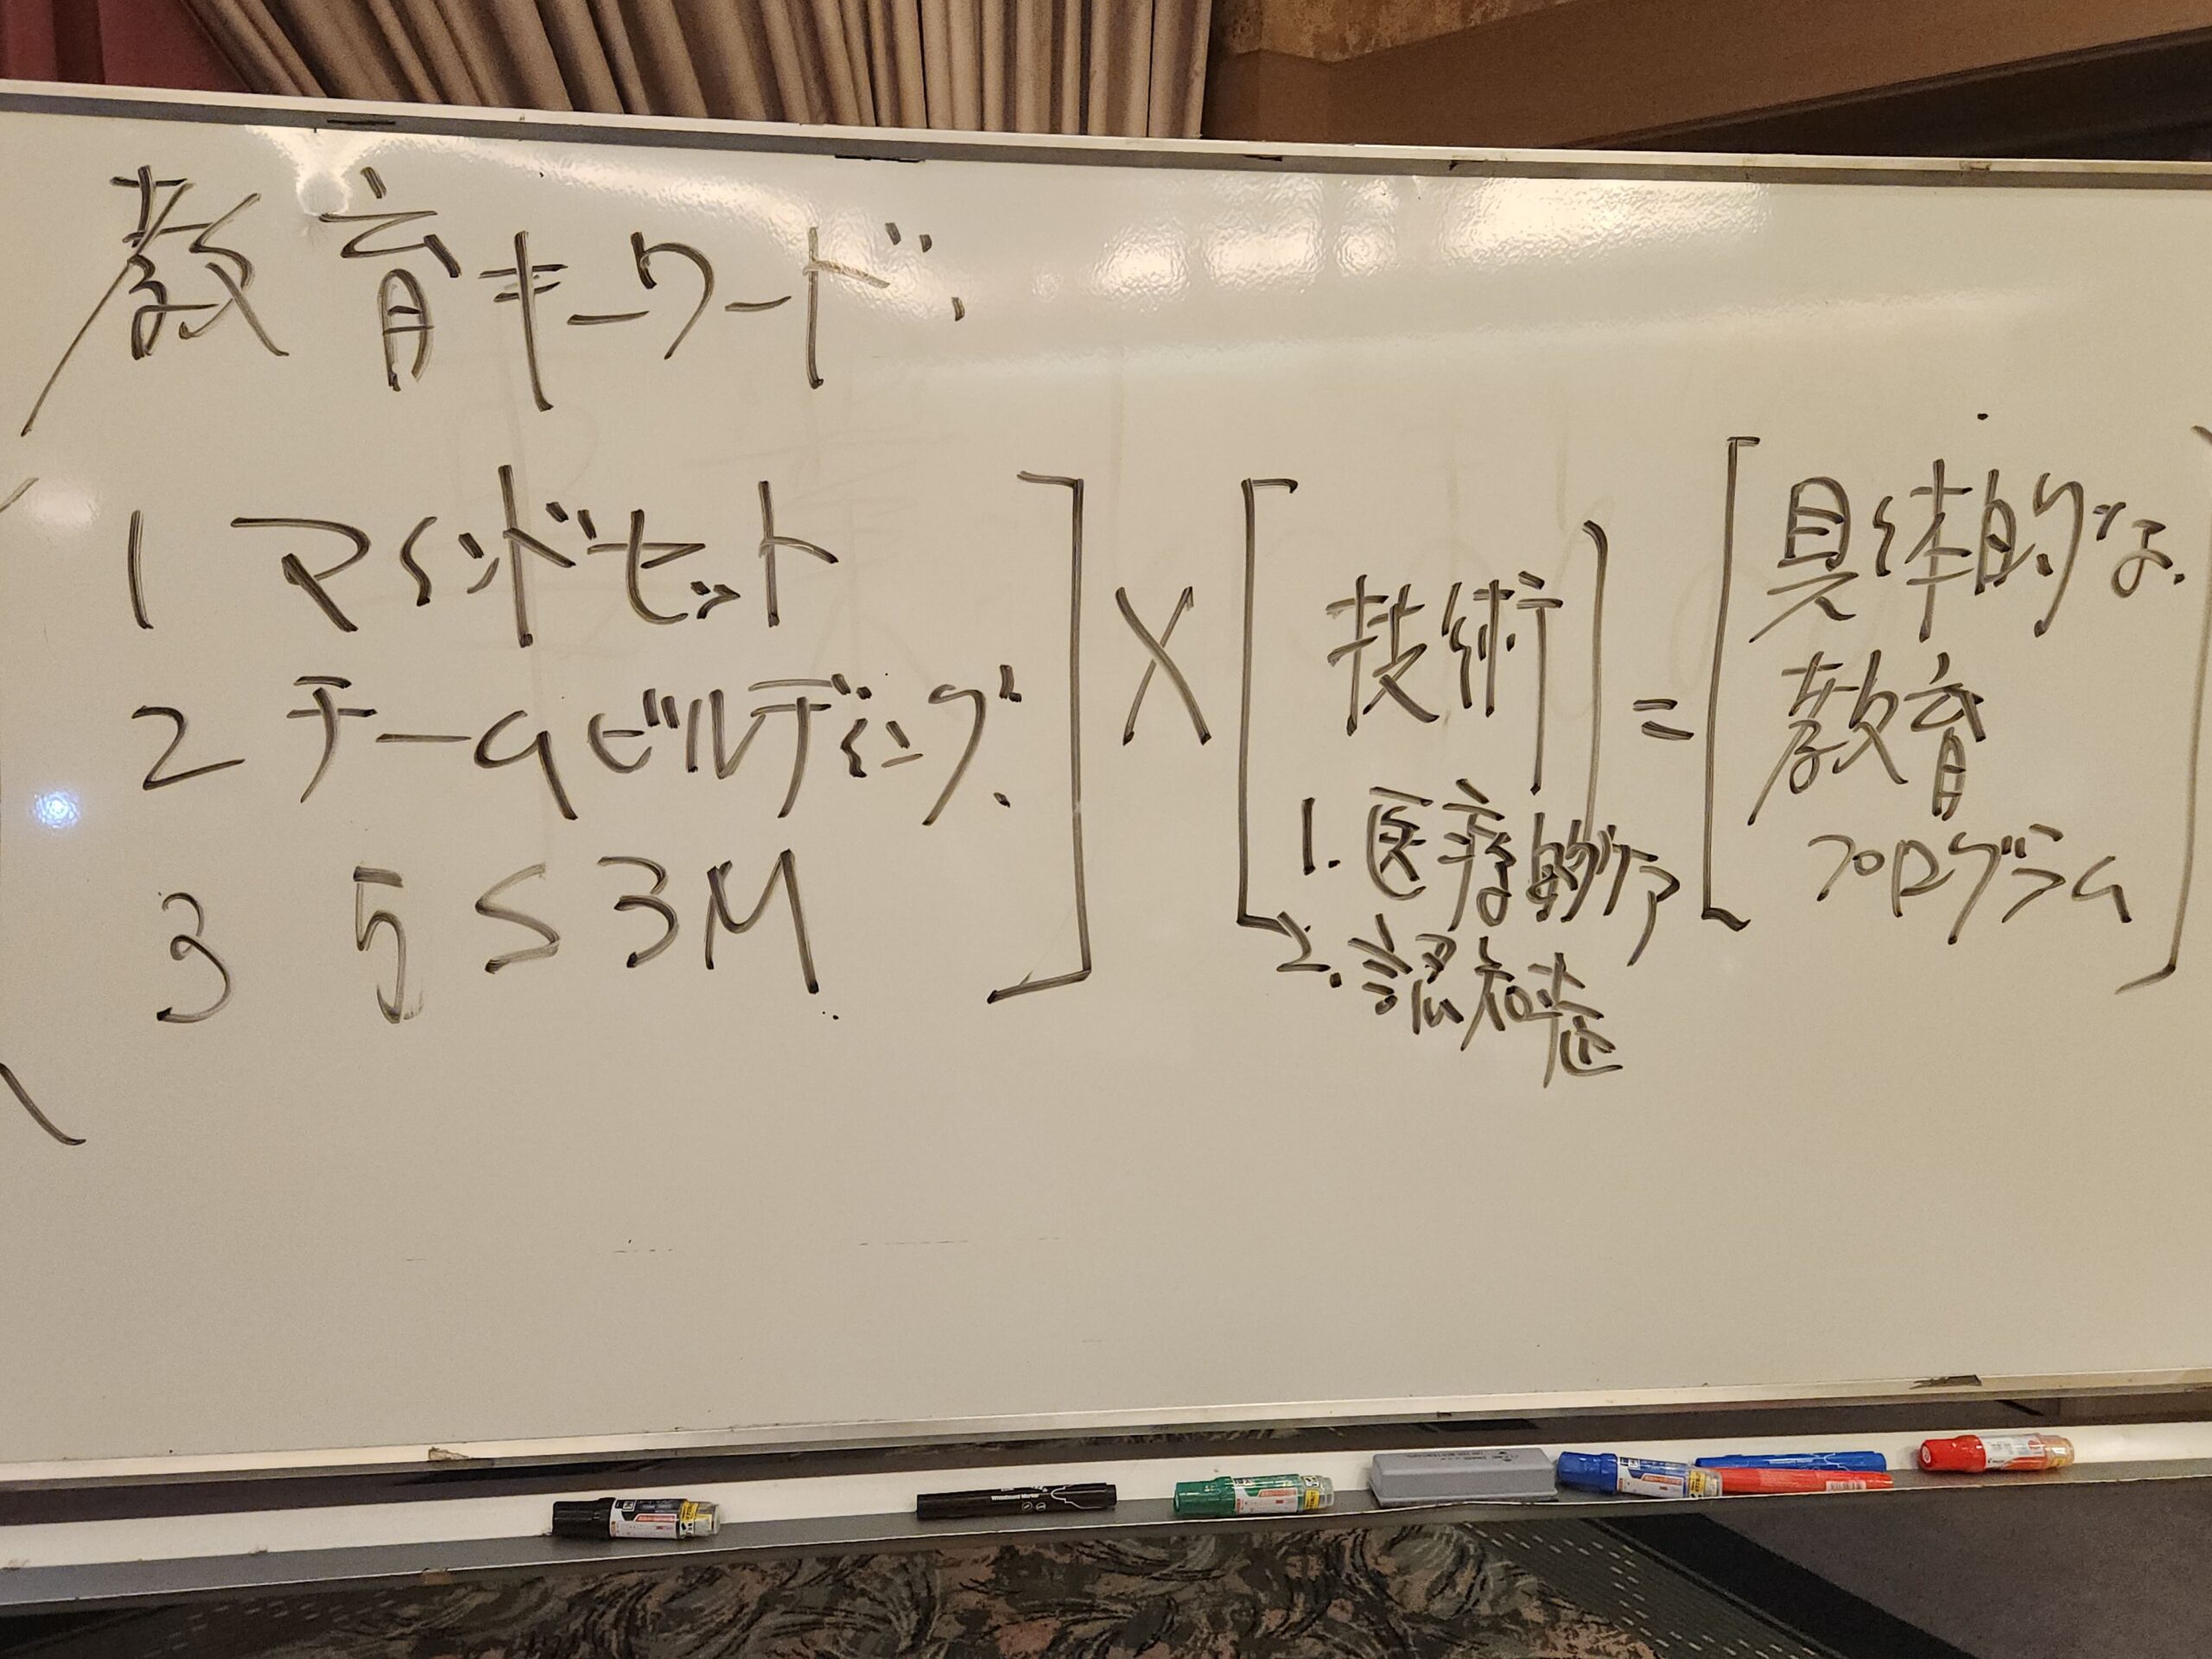 教育キーワード:
1 マインドセット
2 チームビルディング.
3 5S 3M
×
技術
1. 医療的ケア
2. 認知症
=
具体的な
教育
プログラム